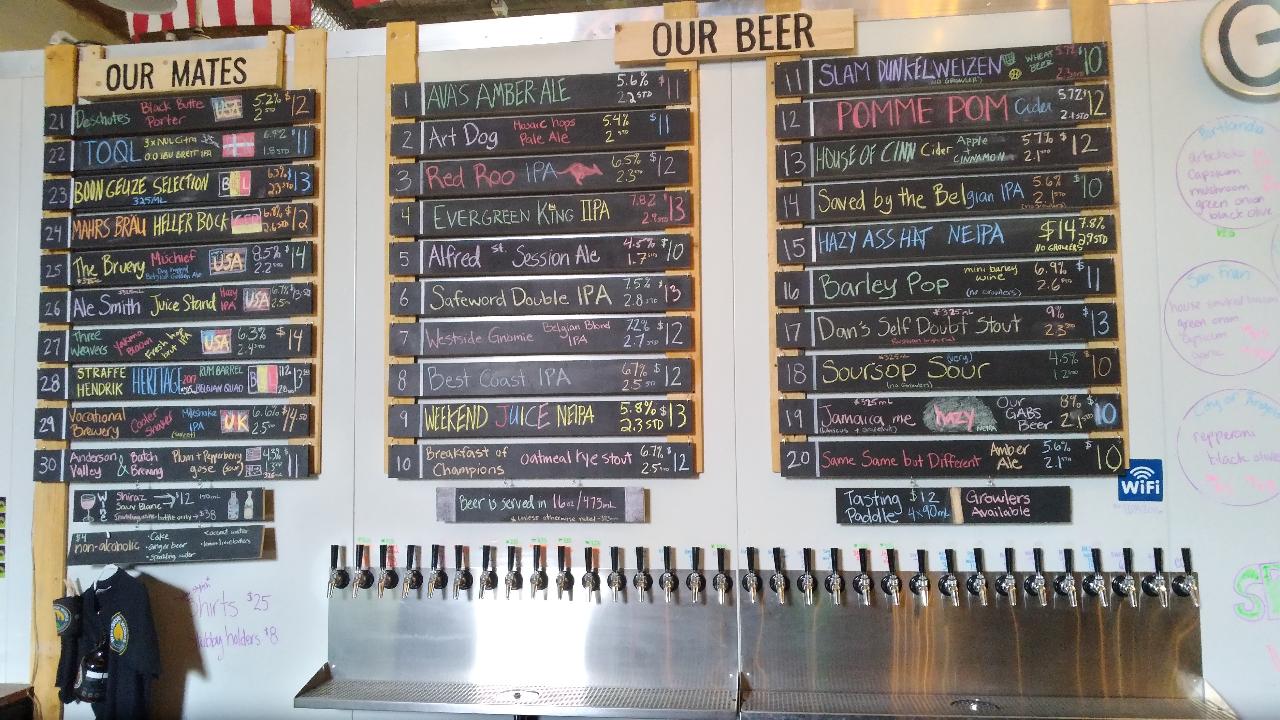 OUR MATES
21 Deschutes Black Butte Porter USA 5.2% 2 STD $12
22 TOOL 3x NULCitra 0.0 IBU BRETT IPA $11
23 BOON GEUZE SELECTION 325ML $13
24 MAHRS BRÄU HELLER BOCK $12
25 The Bruery Mischief USA 8.5% 2.2 STD $14
26 Ale Smith Juice Stand Hazy IPA USA 6.7%
27 Three Weavers Yakima Bloom Fresh hop wet IPA USA 6.3% 2.4 STD $14
28 STRAFFE HENDRIK HERITAGE 2017 RUM BARREL BELGIAN QUAD
29 Vocational Brewery Cooler Shaker Milkshake IPA UK 6.6% 2.5 STD $14.50
30 Anderson Valley & Batch Brewing Plum + Pepperberry gose (sour) 4.3% $11
WINE Shiraz → $12 150ml
Sauv Blanc
Sparkling wine - bottle only → $38
$4 non-alcoholic • Coke • ginger beer • sparkling cider • coconut water
OUR BEER
1 AVAS AMBER ALE 5.6% 2.2 STD $11
2 Art Dog Mosaic hops Pale Ale 5.4% 2 STD $11
3 Red Roo IPA 6.5% 2.3 STD $12
4 EVERGREEN KING IIPA 7.8% 2.9 STD $13
5 Alfred St. Session Ale 4.5% 1.7 STD $10
6 Safeword Double IPA 7.5% 2.8 STD $13
7 Westside Gnomie Belgian Blond IPA 7.2% 2.7 STD $12
8 Best Coast IPA 6.7% 2.5 STD $12
9 WEEKEND JUICE NEIPA 5.8% 2.3 STD $13
10 Breakfast of Champions oatmeal rye stout 6.7% 2.5 STD $12
Beer is served in 16oz/473mL
* unless otherwise noted
11 SLAM DUNKELWEIZEN (NO GROWLERS) WHEAT BEER 5.7% 2.3 STD $10
12 POMME POM Cider 5.7% 2.1 STD $12
13 HOUSE OF CINN Cider Apple + CINNAMON 5.7% 2.1 STD $12
14 Saved by the Belgian IPA 5.6% 2.1 STD (no Growlers) $10
15 HAZY ASS HAT NEIPA $14 7.8% 2.9 STD NO GROWLERS
16 Barley Pop mini barley wine (no Growlers) 6.9% 2.6 STD $11
17 Dan's Self Doubt Stout *325mL Russian Imperial 9% 2.3 STD $13
18 Soursop Sour (very) (no Growlers) 4.5% 1.2 STD $10
19 Jamaica me hazy NEIPA *325mL (hibiscus + grapefruit) Our GABS Beer 8% 2.1 STD $10
20 Same Same but Different Amber Ale 5.6% 2.1 STD $10
Tasting Paddle $12 4x90mL
Growlers Available
WiFi
Shirts $25
Stubby holders $8
Portlandia
artichoke
Capsicum
mushroom
green onion
black olive
San Fran
house smoked bacon
green onion
capsicum
garlic
City of Angels
pepperoni
black olive